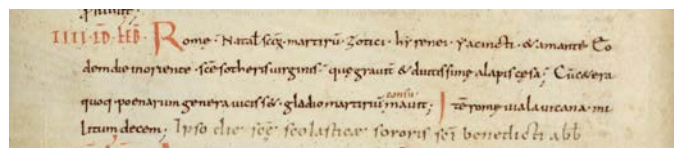 IIII · ID · FEB · Rome · Natal̄ scōꝝ · martirū · Zotici · hyrenei · Yacincti · & amantii · Eo
dem die in oriente · scē sotheris uirginis · quę grauit̄ & diutissime alapis cęsa ; Cū cętera
quoq · poenarum genera uicisset · gladio martiriū consū mauit ; Itē rome uia lauicana · mi
litum decem ; Ipso die scē scolasticae sororis scī benedicti abb̄